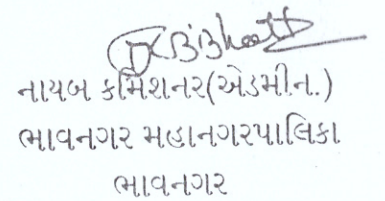 નાયબ કમિશનર(એડમીન.)
ભાવનગર મહાનગરપાલિકા
ભાવનગર